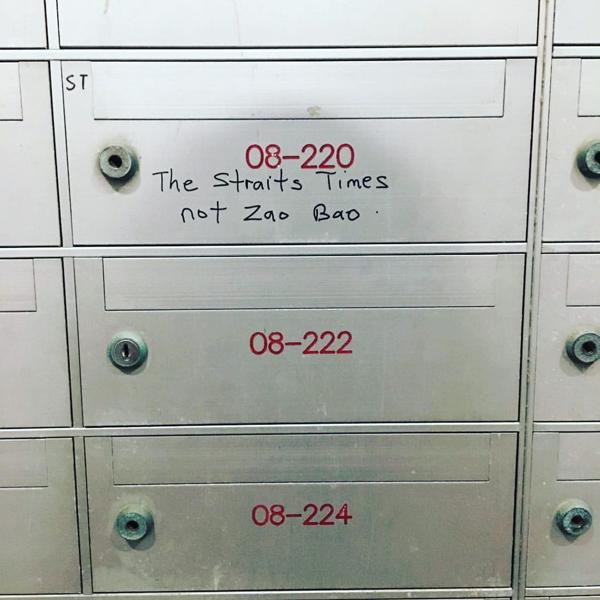 ST
08-220
The Straits Times
not Zao Bao.
08-222
08-224